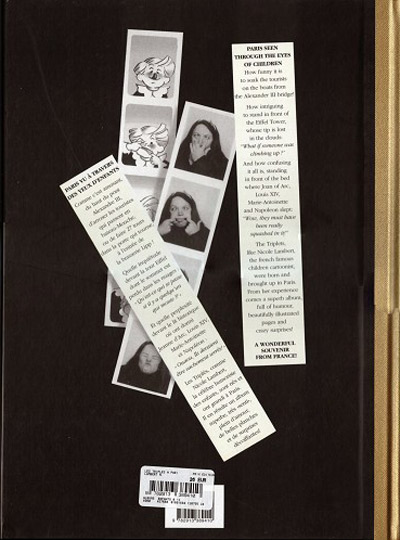 PARIS SEEN
THROUGH THE EYES
OF CHILDREN
How funny it is
to soak the tourists
on the boats from
the Alexander III bridge!
How intriguing
to stand in front of
the Eiffel Tower,
whose tip is lost
in the clouds
"What if someone was
climbing up?"
And how confusing
it all is, standing
in front of the bed
where Jean of Arc,
Louis XIV,
Marie-Antoinette
and Napoleon slept.
"Wow, they must have
been really
squashed in it!"
The Triplets,
like Nicole Lambert,
the french famous
children cartoonist,
were born and
brought up in Paris.
From her experience
comes a superb album,
full of humour,
beautifully illustrated
pages and
crazy surprises!
A WONDERFUL
SOUVENIR
FROM FRANCE!
PARIS VU À TRAVERS
DES YEUX D'ENFANTS
Comme c'est amusant,
du haut du pont
Alexandre III,
d'arroser les touristes
qui passent en
bateau-Mouche,
ou de faire 27 tours
dans la porte qui tourne,
à l'entrée de
la banzaï
Quelle inquiétude
devant la tour Eiffel
dont le sommet est
perdu dans les nuages
Et quelle perplexité
devant le lit historique
où ont dormi
Jeanne d'Arc, Louis XIV,
Marie-Antoinette
et Napoléon :
Les Triplés, comme
Nicole Lambert,
la célèbre humoriste
des enfants, sont nés et
ont grandi à Paris.
Il en résulte un album
superbe, très
plein d'amour,
de belles planches
et de surprises
décoiffantes!
LES TRIPLES A PARI
LAMBERT N.
20 EUR